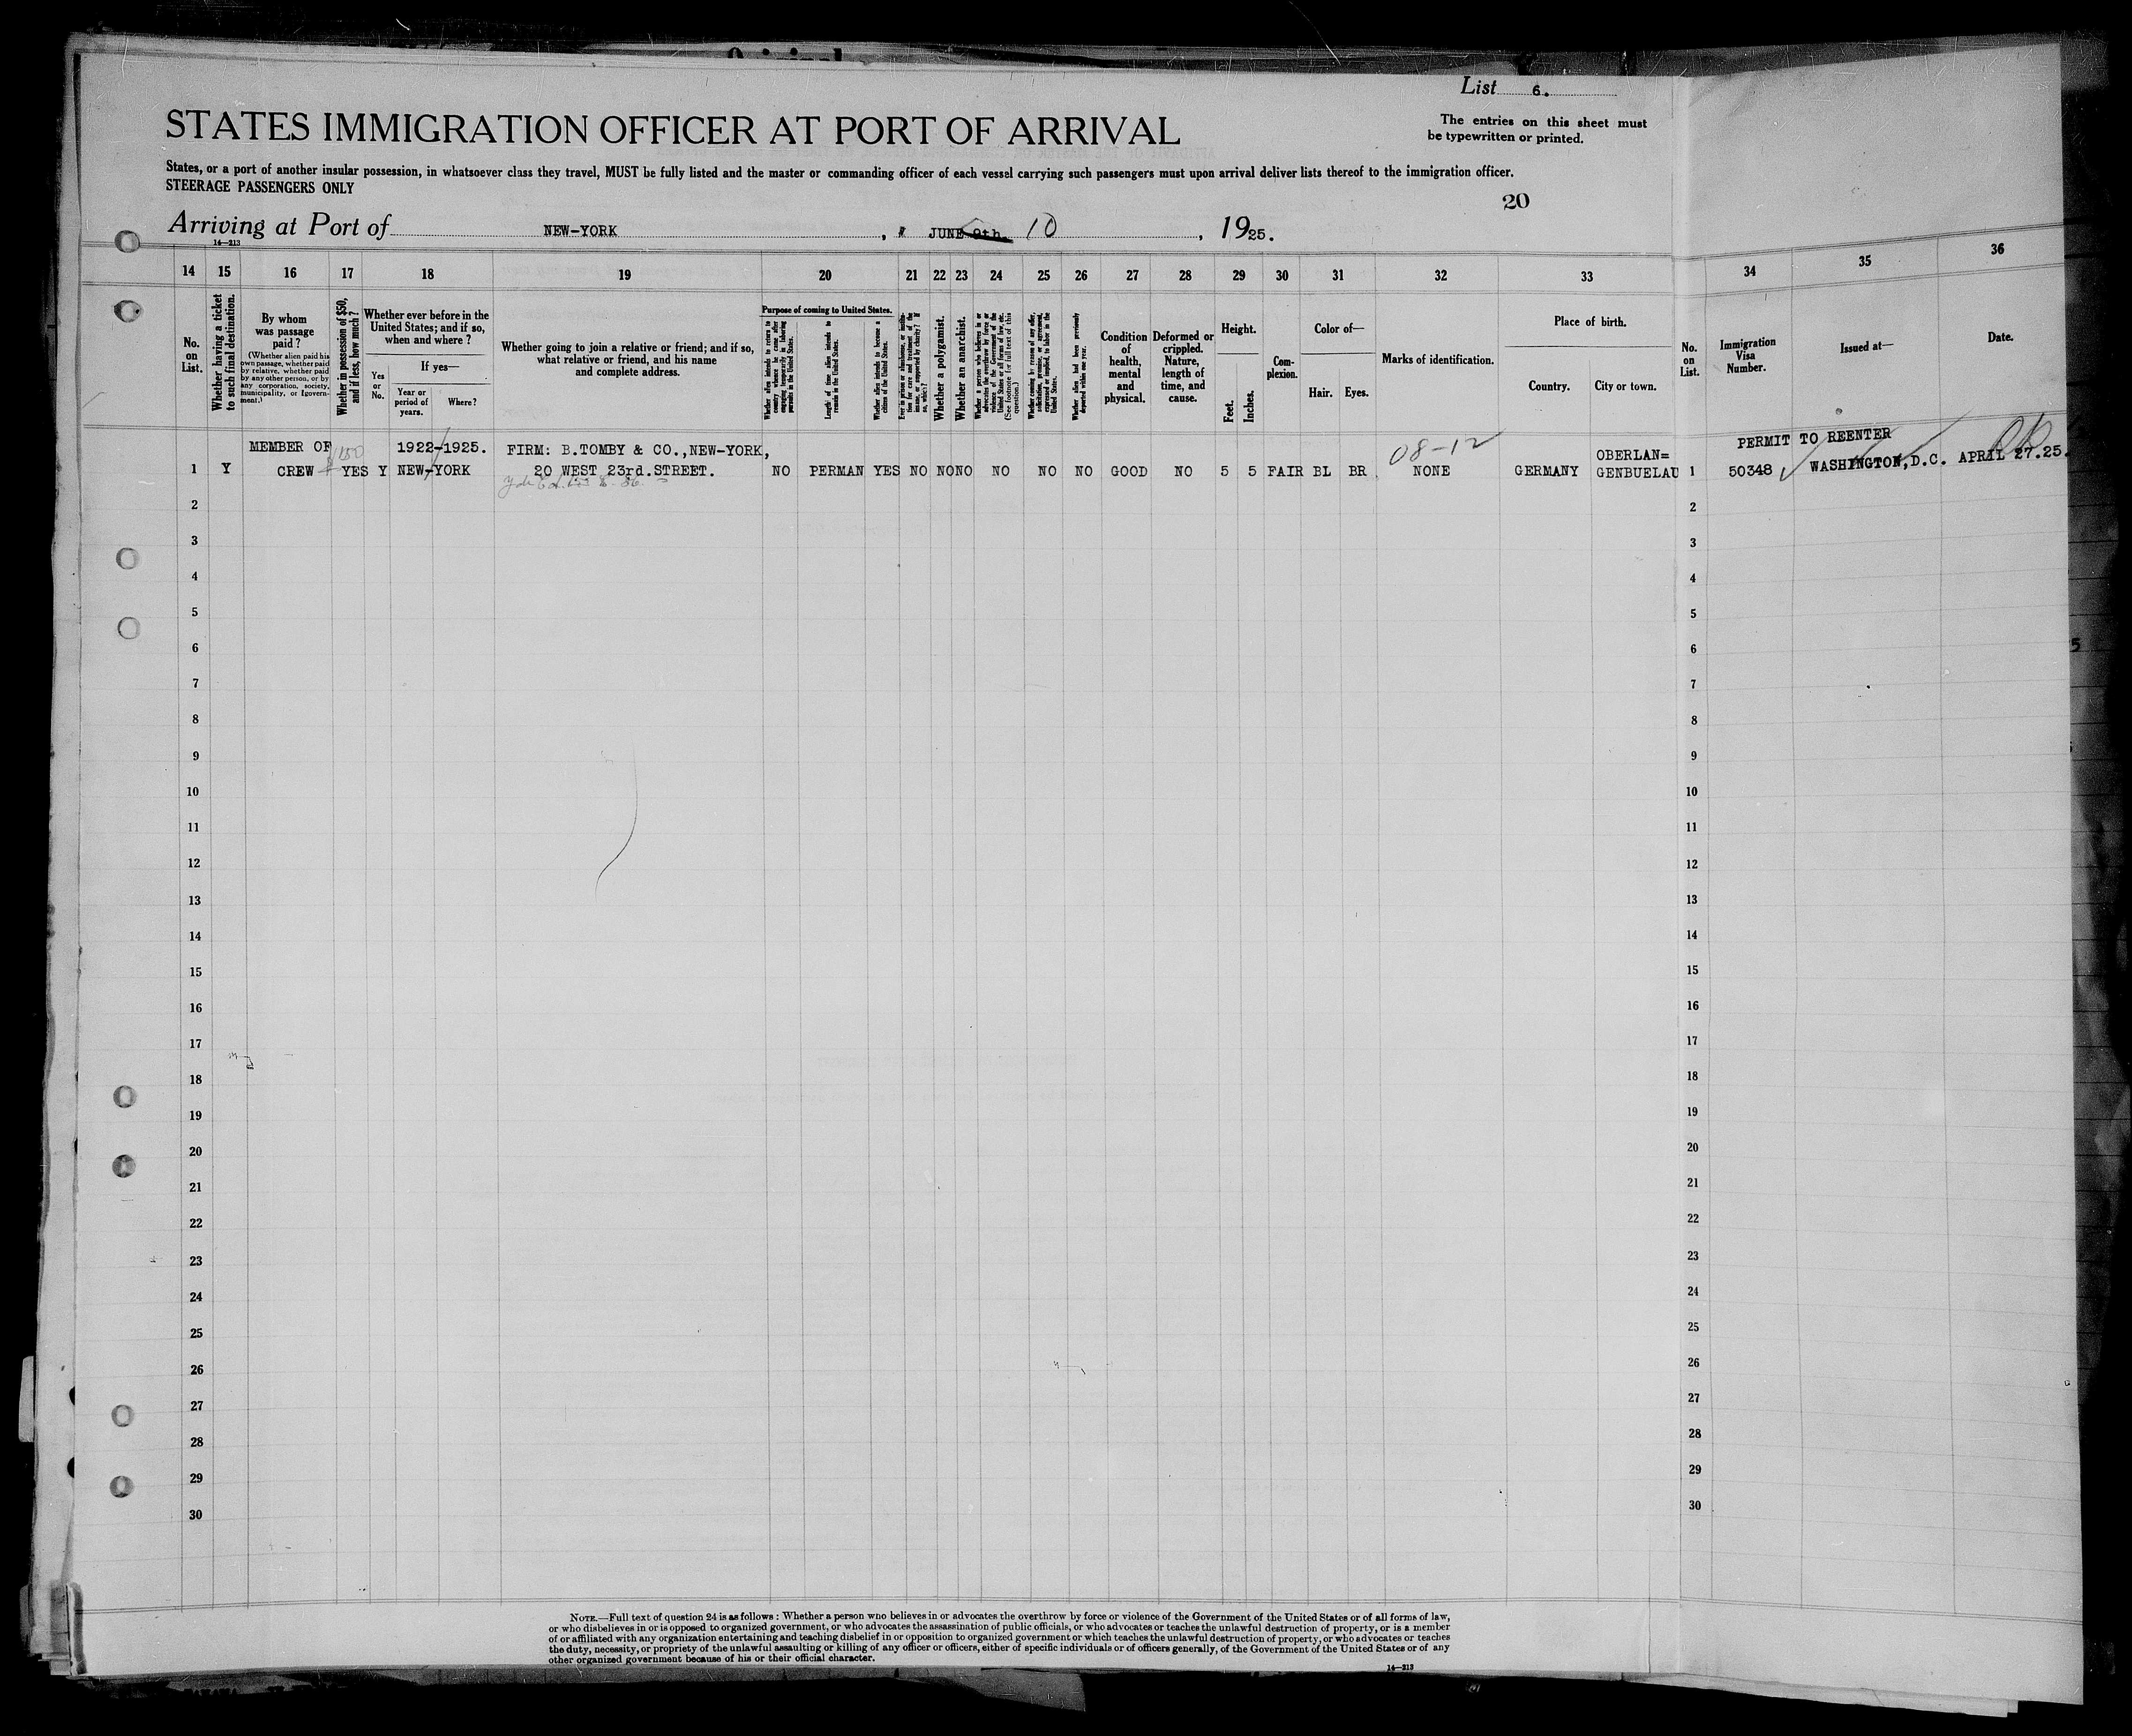 List 6.
STATES IMMIGRATION OFFICER AT PORT OF ARRIVAL
The entries on this sheet must
be typewritten or printed.
States, or a port of another insular possession, in whatsoever class they travel, MUST be fully listed and the master or commanding officer of each vessel carrying such passengers must upon arrival deliver lists thereof to the immigration officer.
STEERAGE PASSENGERS ONLY
20
Arriving at Port of NEW-YORK, JUNE 9th. 10, 1925.
14—213
14 15 16 17 18 19 20 21 22 23 24 25 26 27 28 29 30 31 32 33 34 35 36
No. on List.
Whether having a ticket to such final destination.
By whom was passage paid?
(Whether alien paid his own passage, whether paid by relative, whether paid by any other person, or by any corporation, society, municipality, or government.)
Whether in possession of $50, and if less, how much?
Whether ever before in the United States; and if so, when and where?
Yes or No.
If yes—
Year or period of years.
Where?
Whether going to join a relative or friend; and if so, what relative or friend, and his name and complete address.
Purpose of coming to United States.
Whether alien intends to return to country whence he came after engaging temporarily in laboring pursuits in the United States.
Length of time alien intends to remain in the United States.
Whether alien intends to become a citizen of the United States.
Whether a polygamist.
Whether an anarchist.
(See footnote for full text of this question.)
Whether alien had been previously deported within one year.
Condition of health, mental and physical.
Deformed or crippled. Nature, length of time, and cause.
Height.
Feet.
Inches.
Complexion.
Color of—
Hair.
Eyes.
Marks of identification.
Place of birth.
Country.
City or town.
No. on List.
Immigration Visa Number.
Issued at—
Date.
MEMBER OF 150 1922-1925. FIRM: B.TOMBY & CO.,NEW-YORK, 08-12 OBERLAN= PERMIT TO REENTER OK
1 Y CREW YES Y NEW-YORK 20 WEST 23rd.STREET. NO PERMAN YES NO NO NO NO NO NO GOOD NO 5 5 FAIR BL BR NONE GERMANY GENBUELAU 1 50348 WASHINGTON,D.C. APRIL 27.25.
2 2
3 3
4 4
5 5
6 6
7 7
8 8
9 9
10 10
11 11
12 12
13 13
14 14
15 15
16 16
17 17
18 18
19 19
20 20
21 21
22 22
23 23
24 24
25 25
26 26
27 27
28 28
29 29
30 30
NOTE.—Full text of question 24 is as follows: Whether a person who believes in or advocates the overthrow by force or violence of the Government of the United States or of all forms of law,
or who disbelieves in or is opposed to organized government, or who advocates the assassination of public officials, or who advocates or teaches the unlawful destruction of property, or is a member
of or affiliated with any organization entertaining and teaching disbelief in or opposition to organized government or which teaches the unlawful destruction of property, or who advocates or teaches
the duty, necessity, or propriety of the unlawful assaulting or killing of any officer or officers, either of specific individuals or of officers generally, of the Government of the United States or of any
other organized government because of his or their official character.
14—213